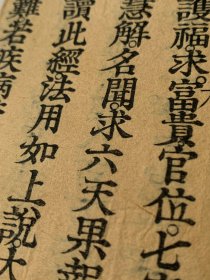 護福。求富貴官位。七
慧解。名聞。求六天果報
讀此經。法用如上說。大
難若疾病